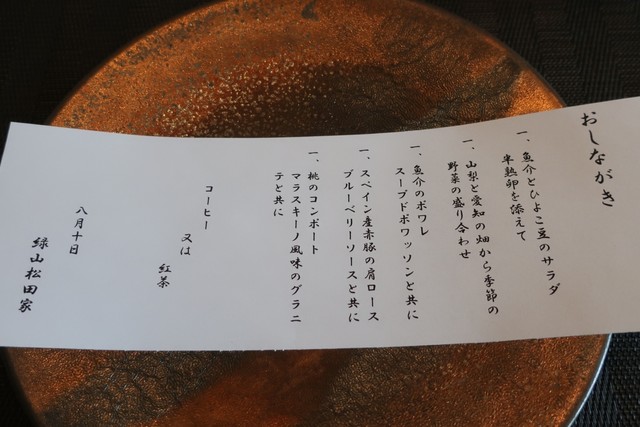 おしながき
一、魚介とひよこ豆のサラダ
半熟卵を添えて
一、山梨と愛知の畑から季節の
野菜の盛り合わせ
一、魚介のポワレ
スープドポワッソンと共に
一、スペイン産赤豚の肩ロース
ブルーベリーソースと共に
一、桃のコンポート
マラスキーノ風味のグラニ
テと共に
コーヒー
又は
紅茶
八月十日
緑山松田家